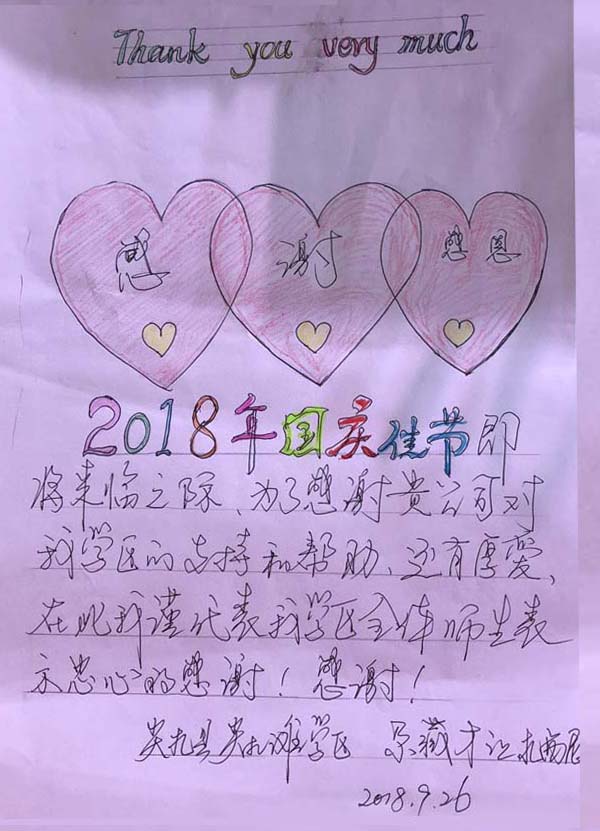 Thank you very much
感 谢 感恩
2018年国庆佳节即
将来临之际、为了感谢贵公司对
我学区的支持和帮助、还有厚爱、
在此我谨代表我学区全体师生表
示忠心的感谢！感谢！
关扎县关扎滩学区 尕藏才让扎西尼
2018.9.26